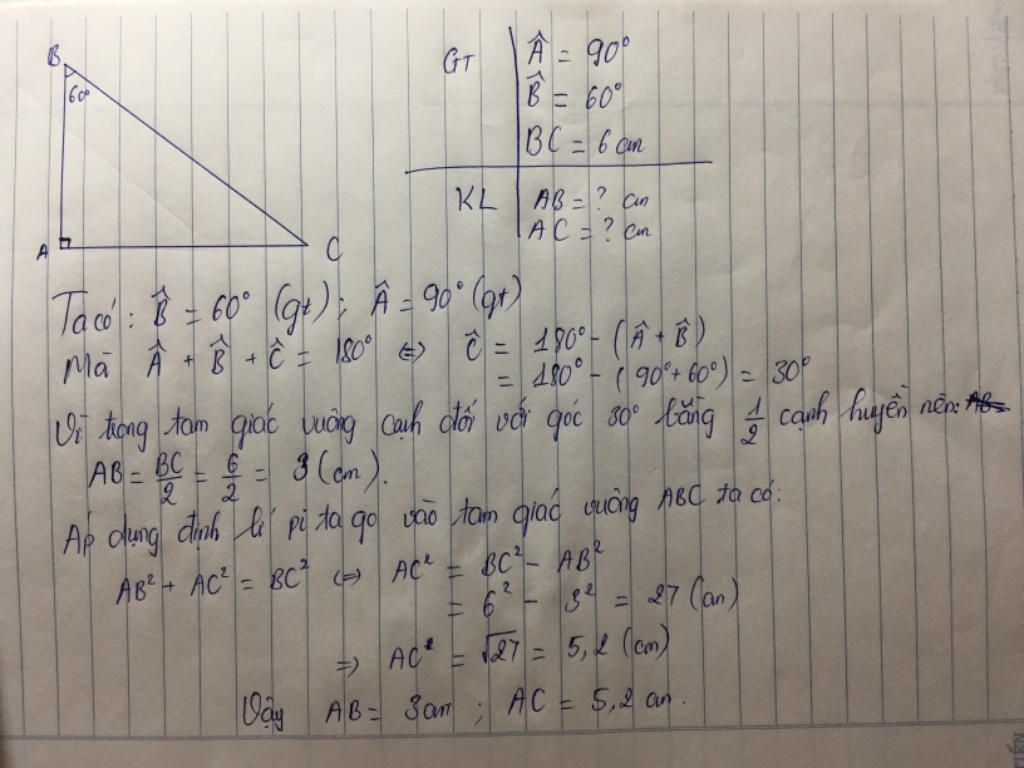 B
60°
A
C
GT
Â = 90°
B̂ = 60°
BC = 6 cm
KL
AB = ? cm
AC = ? cm
Ta có : B̂ = 60° (gt) ; Â = 90° (gt)
Mà Â + B̂ + Ĉ = 180° ⇔ Ĉ = 180° - (Â + B̂)
= 180° - (90° + 60°) = 30°
Vì trong tam giác vuông cạnh đối với góc 30° bằng 1/2 cạnh huyền nên:
AB = BC/2 = 6/2 = 3 (cm).
Áp dụng định lí pi ta go vào tam giác vuông ABC ta có:
AB² + AC² = BC² ⇔ AC² = BC² - AB²
= 6² - 3² = 27 (cm)
⇒ AC² = √27 = 5,2 (cm)
Vậy AB = 3cm ; AC = 5,2 cm.